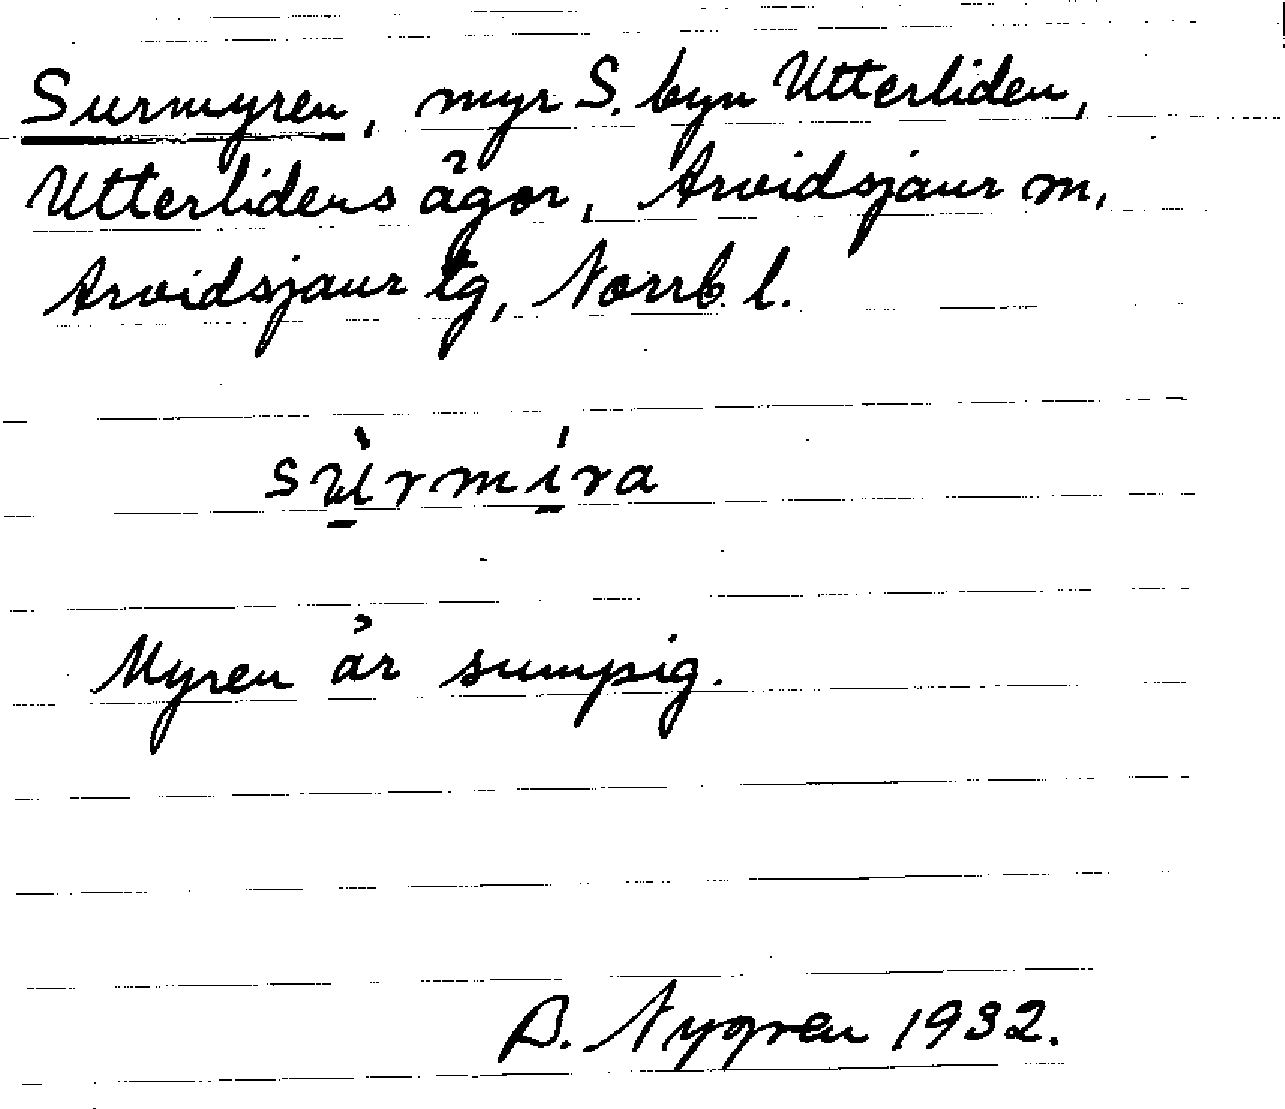 Surmyren, myr S. byn Utterliden,
Utterlidens ägor, Arvidsjaur sn,
Arvidsjaur tg, Norrb. l.
sùrmı́ra
Myren är sumpig.
B. Nygren 1932.